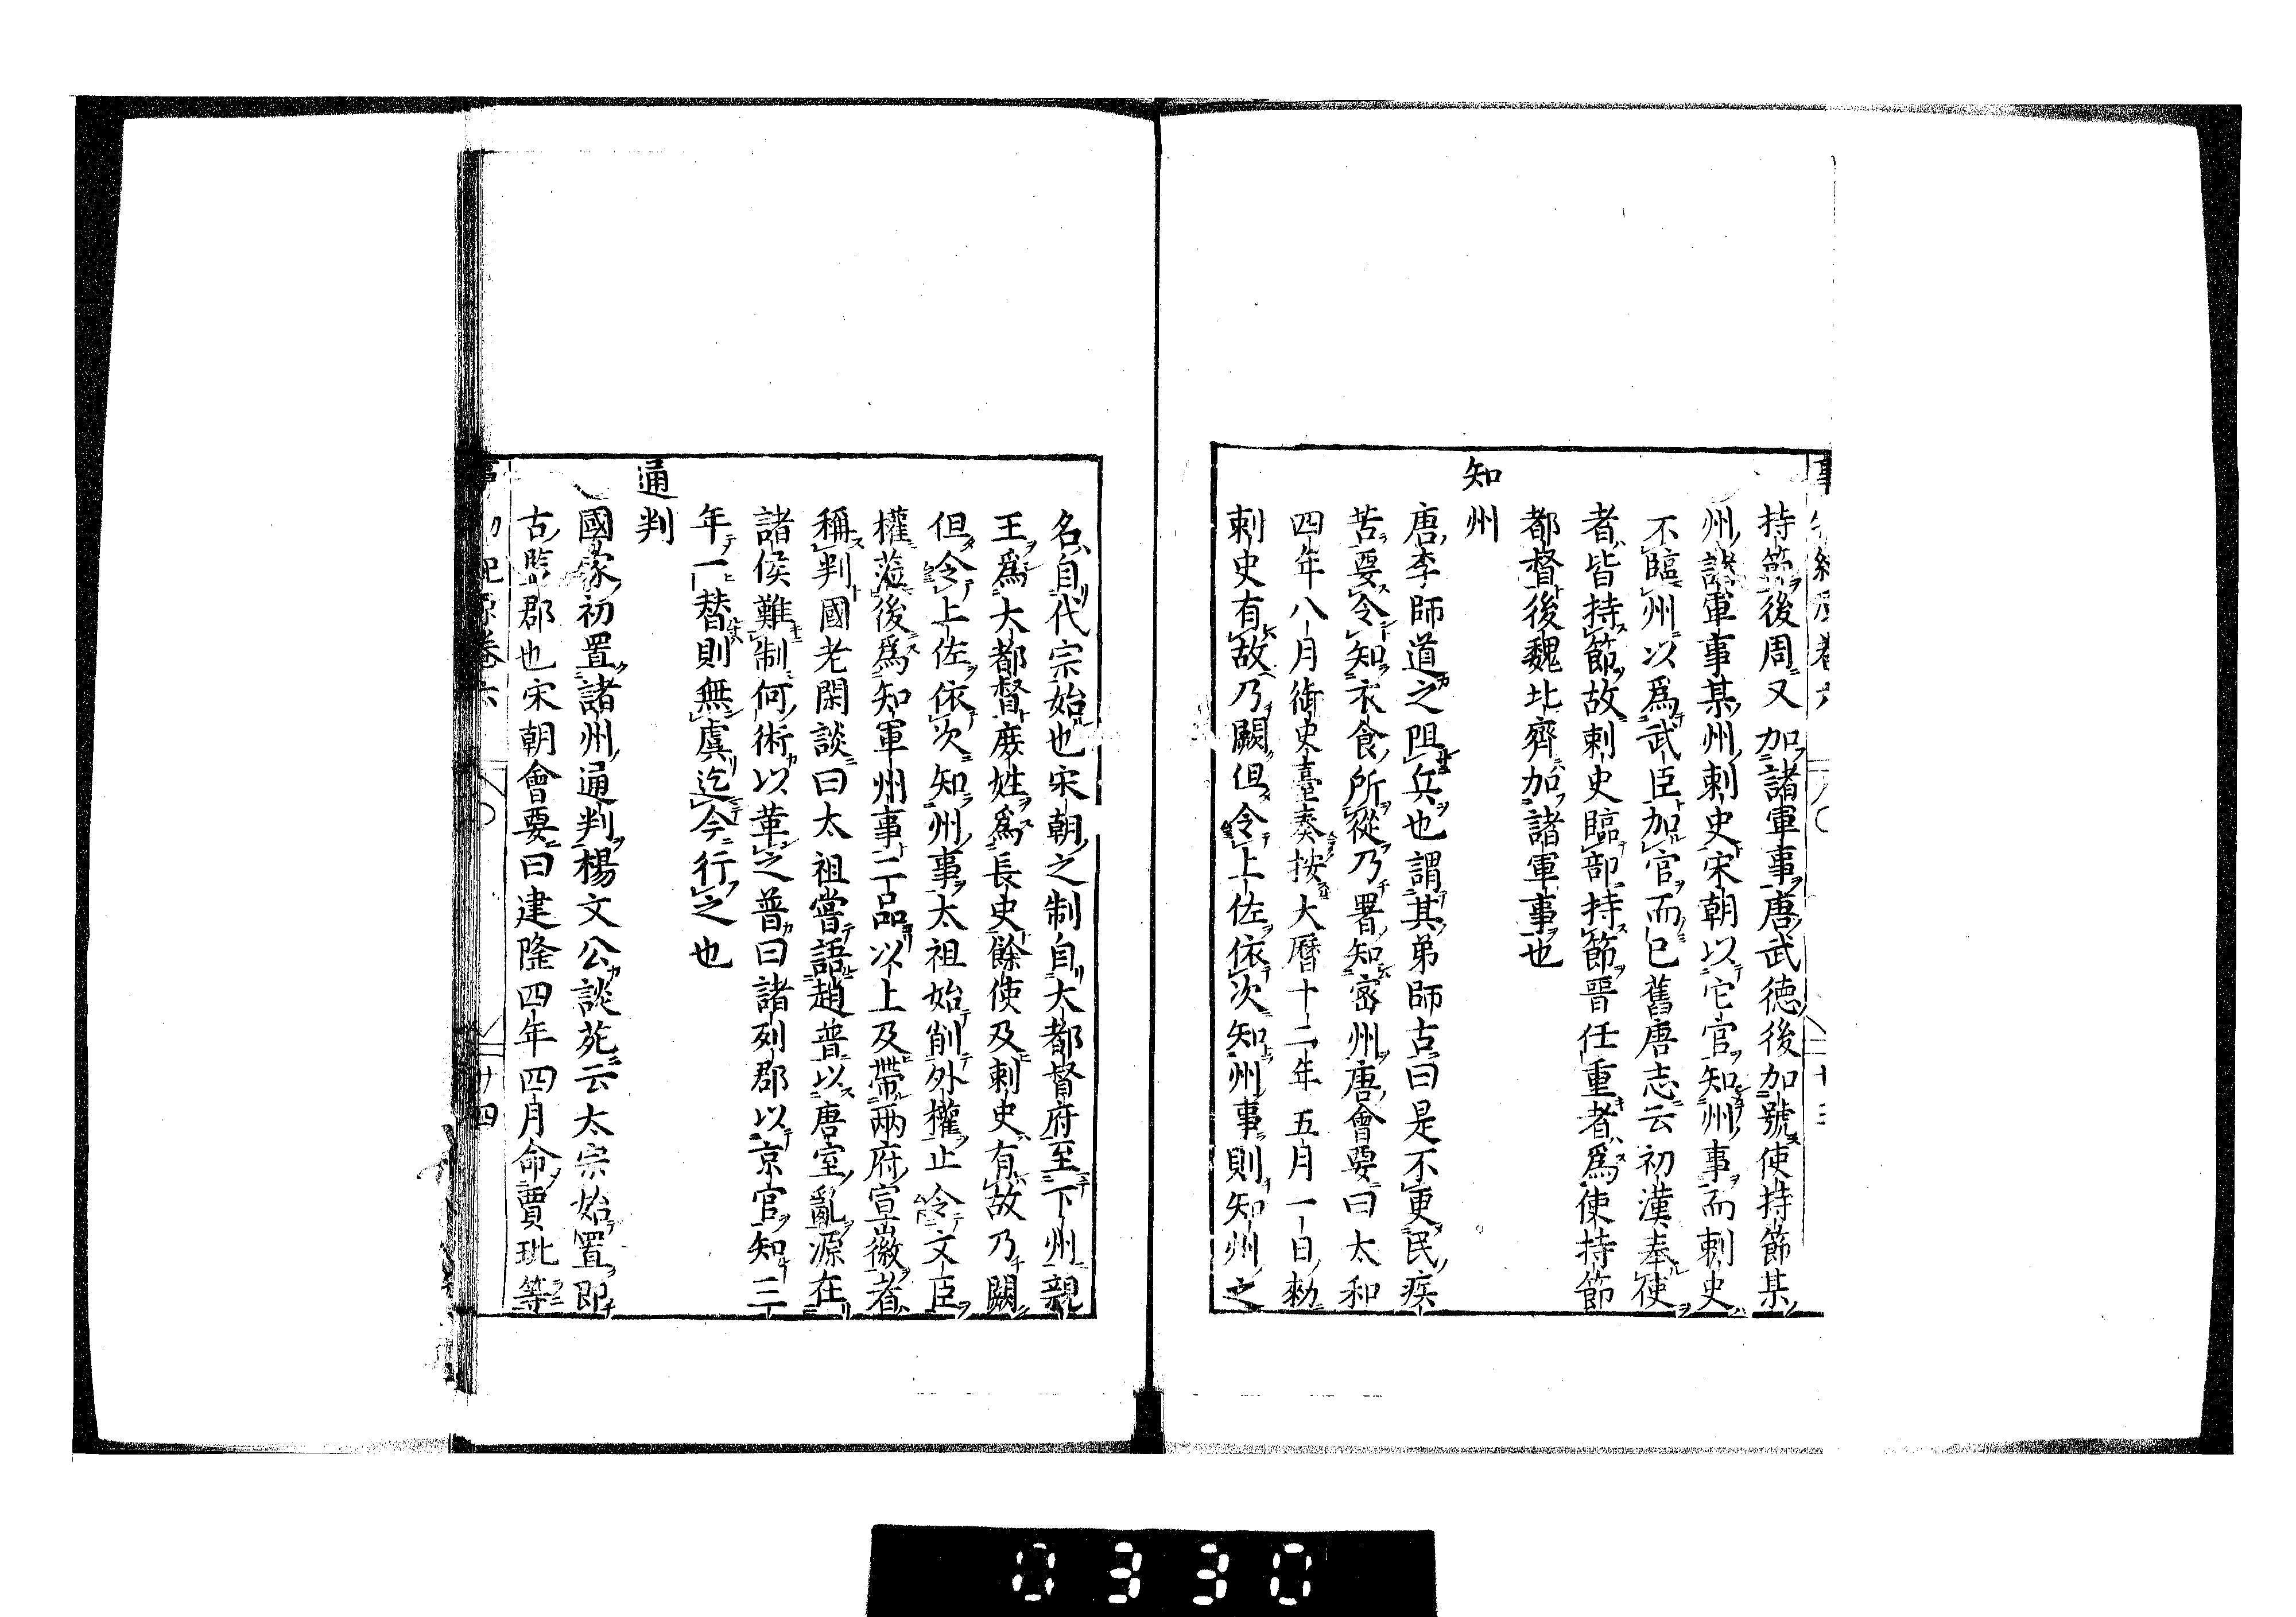 持節後周又加諸軍事唐武德後加號使持節某
州諸軍事某州刺史宋朝以它官知州事而刺史
不臨州以爲武臣加官而已舊唐志云初漢奉使
者皆持節故刺史臨部持節晉任重者爲使持節
都督後魏北齊加諸軍事也
知州
唐李師道之阻兵也謂其弟師古曰是不更民疾
苦要令知衣食所從乃署知密州唐會要曰太和
四年八月御史臺奏按大曆十二年五月一日勑
刺史有故乃闕但令上佐依次知州事則知州之
名自代宗始也宋朝之制自大都督府至下州親
王爲大都督庶姓爲長史餘使及刺史有故乃闕
但令上佐依次知州事太祖始削外權止令文臣
權蒞後爲知軍州事二品以上及帶兩府宣徽者
稱判國老閑談曰太祖嘗語趙普以唐室亂源在
諸侯難制何術以革之普曰諸列郡以京官知三
年一替則無虞迄今行之也
通判
國家初置諸州通判楊文公談苑云太宗始置即
古監郡也宋朝會要曰建隆四年四月命賈玭等
卷六
廿四
0330